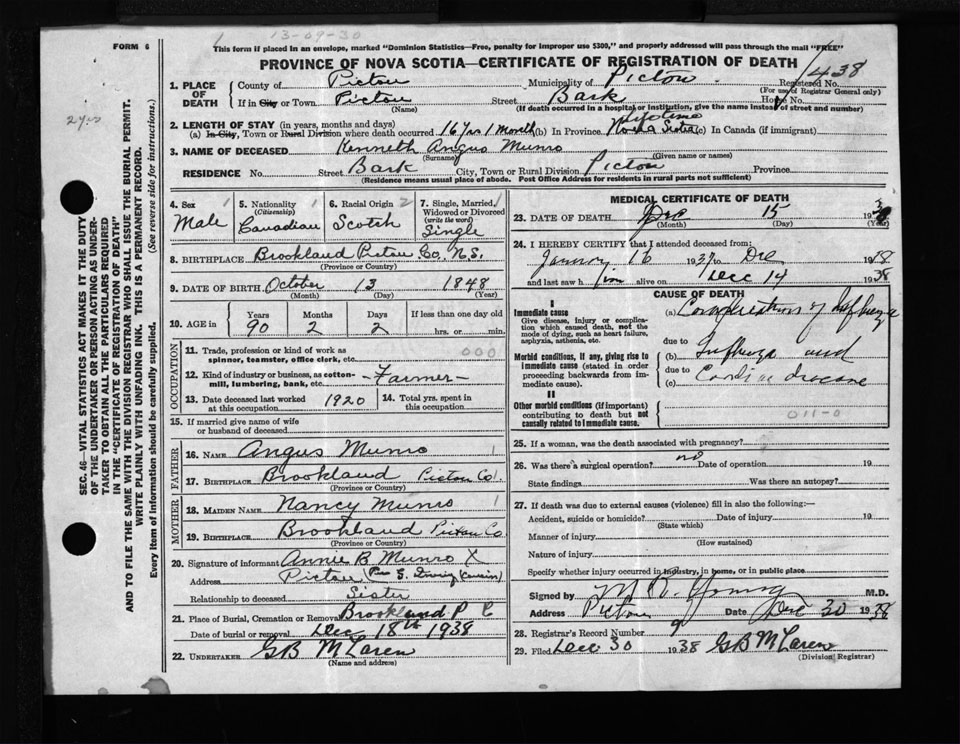 13-09-30
FORM 6
This form if placed in an envelope, marked "Dominion Statistics—Free, penalty for improper use $300," and properly addressed will pass through the mail "FREE"
PROVINCE OF NOVA SCOTIA—CERTIFICATE OF REGISTRATION OF DEATH
1. PLACE OF DEATH
County of Pictou Municipality of Pictou Registered No. 438
(For use of Registrar General only)
If in City or Town Pictou Street House No.
(If death occurred in a hospital or institution, give the name instead of street and number)
2 yrs
2. LENGTH OF STAY (in years, months and days)
(a) In City, Town or Rural Division where death occurred 16 Yrs 1 Month (b) In Province Lifetime Nova Scotia (c) In Canada (if immigrant)
3. NAME OF DECEASED Kenneth Angus Munro
(Surname) (Given name or names)
RESIDENCE No. Street City, Town or Rural Division Pictou Province
(Residence means usual place of abode. Post Office Address for residents in rural parts not sufficient)
4. Sex 1
Male
5. Nationality 1
(Citizenship)
Canadian
6. Racial Origin 2
Scotch
7. Single, Married, 1
Widowed or Divorced
(write the word)
Single
8. BIRTHPLACE Brookland Pictou Co, N.S.
(Province or Country)
9. DATE OF BIRTH October 13 1848
(Month) (Day) (Year)
10. AGE in Years Months Days If less than one day old
90 2 2 hrs. or min.
OCCUPATION
11. Trade, profession or kind of work as
spinner, teamster, office clerk, etc. 000
12. Kind of industry or business, as cotton-
mill, lumbering, bank, etc. -Farmer-
13. Date deceased last worked
at this occupation 1920
14. Total yrs. spent in
this occupation
15. If married give name of wife
or husband of deceased
FATHER
16. NAME Angus Munro 1
17. BIRTHPLACE Brookland Pictou Co. 1
(Province or Country)
MOTHER
18. MAIDEN NAME Nancy Munro 1
19. BIRTHPLACE Brookland Pictou Co
(Province or Country)
20. Signature of informant Annie B. Munro X
Address Pictou (Per S. (cousin)
Relationship to deceased Sister
21. Place of Burial, Cremation or Removal Brookland P C
Date of burial or removal Dec, 18th 1938
22. UNDERTAKER GB McLaren
(Name and address)
MEDICAL CERTIFICATE OF DEATH
23. DATE OF DEATH Dec 15 1938
(Month) (Day) (Year)
24. I HEREBY CERTIFY that I attended deceased from:
January 16 1937 to Dec 1938
and last saw him alive on Dec 14 1938
CAUSE OF DEATH
I
Immediate cause
Give disease, injury or complication which caused death, not the mode of dying, such as heart failure, asphyxia, asthenia, etc.
(a) Complications of
due to
Morbid conditions, if any, giving rise to immediate cause (stated in order proceeding backwards from immediate cause).
(b) Influenza and
due to
(c) Cardiac disease
II
Other morbid conditions (if important) contributing to death but not causally related to immediate cause.
011-0
25. If a woman, was the death associated with pregnancy?
26. Was there a surgical operation? no Date of operation 19
State findings Was there an autopsy?
27. If death was due to external causes (violence) fill in also the following:—
Accident, suicide or homicide? Date of injury 19
(State which)
Manner of injury
(How sustained)
Nature of injury
Specify whether injury occurred in industry, in home, or in public place
Signed by Young M.D.
Address Pictou Date Dec 30 1938
28. Registrar's Record Number 9
29. Filed Dec 30 1938 GB McLaren
(Division Registrar)
SEC. 46—VITAL STATISTICS ACT MAKES IT THE DUTY
OF THE UNDERTAKER OR PERSON ACTING AS UNDER-
TAKER TO OBTAIN ALL THE PARTICULARS REQUIRED
IN THE "CERTIFICATE OF REGISTRATION OF DEATH"
AND TO FILE THE SAME WITH THE DIVISION REGISTRAR WHO SHALL ISSUE THE BURIAL PERMIT.
WRITE PLAINLY WITH UNFADING INK. THIS IS A PERMANENT RECORD.
Every item of information should be carefully supplied. (See reverse side for instructions.)